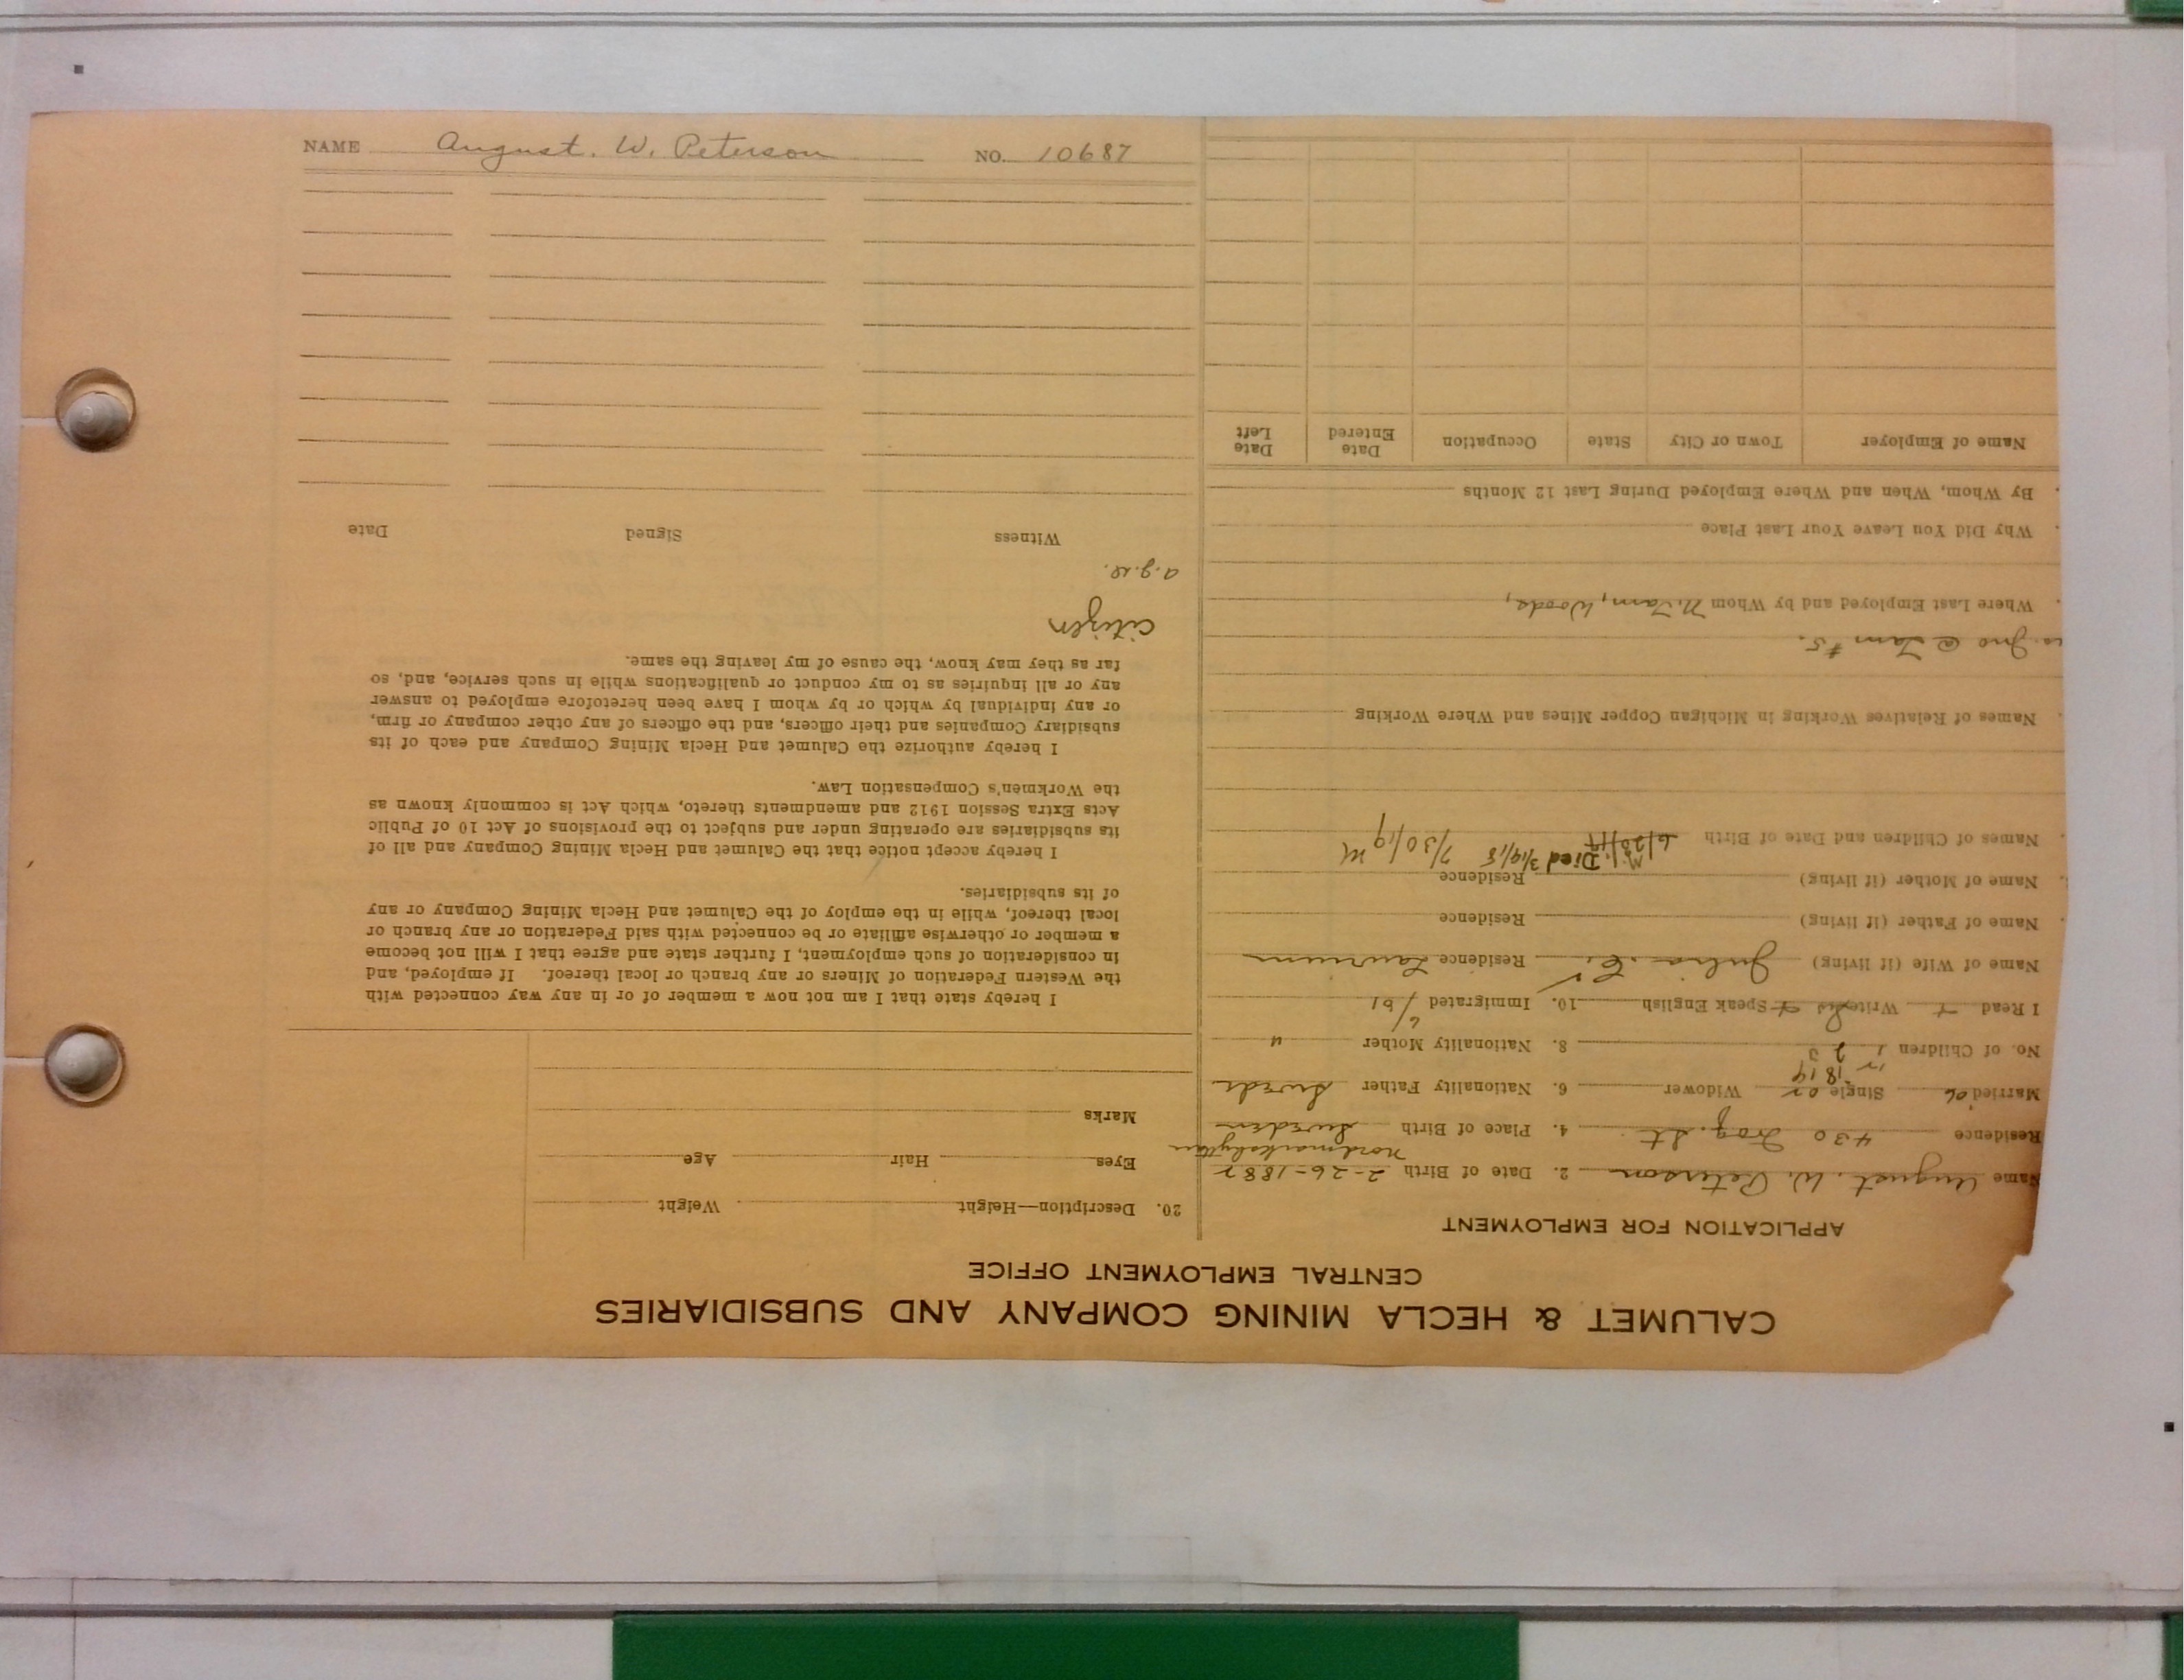 NAME August. W. Peterson NO. 10687
CALUMET & HECLA MINING COMPANY AND SUBSIDIARIES
CENTRAL EMPLOYMENT OFFICE
APPLICATION FOR EMPLOYMENT
Name August. W. Peterson 2. Date of Birth 2-26-1882
Residence 430 St. 4. Place of Birth Sweden
Married Single Widower 6. Nationality Father Swede
18 19
No. of Children 8. Nationality Mother "
I Read Write Speak English 10. Immigrated
Name of Wife (if living) Julia. C. Residence Laurium
Name of Father (if living) Residence
Name of Mother (if living) Residence
Died 3/19/18 7/30/19 M
Names of Children and Date of Birth
Names of Relatives Working in Michigan Copper Mines and Where Working
@ Tam #5.
Where Last Employed and by Whom N. Tam, Woods,
Why Did You Leave Your Last Place
By Whom, When and Where Employed During Last 12 Months
Name of Employer Town or City State Occupation Date Entered Date Left
20. Description—Height Weight
Eyes Hair Age
Marks
I hereby state that I am not now a member of or in any way connected with
the Western Federation of Miners or any branch or local thereof. If employed, and
in consideration of such employment, I further state and agree that I will not become
a member or otherwise affiliate or be connected with said Federation or any branch or
local thereof, while in the employ of the Calumet and Hecla Mining Company or any
of its subsidiaries.
I hereby accept notice that the Calumet and Hecla Mining Company and all of
its subsidiaries are operating under and subject to the provisions of Act 10 of Public
Acts Extra Session 1912 and amendments thereto, which Act is commonly known as
the Workmen's Compensation Law.
I hereby authorize the Calumet and Hecla Mining Company and each of its
subsidiary Companies and their officers, and the officers of any other company or firm,
or any individual by which or by whom I have been heretofore employed to answer
any or all inquiries as to my conduct or qualifications while in such service, and, so
far as they may know, the cause of my leaving the same.
Citizen
Witness Signed Date